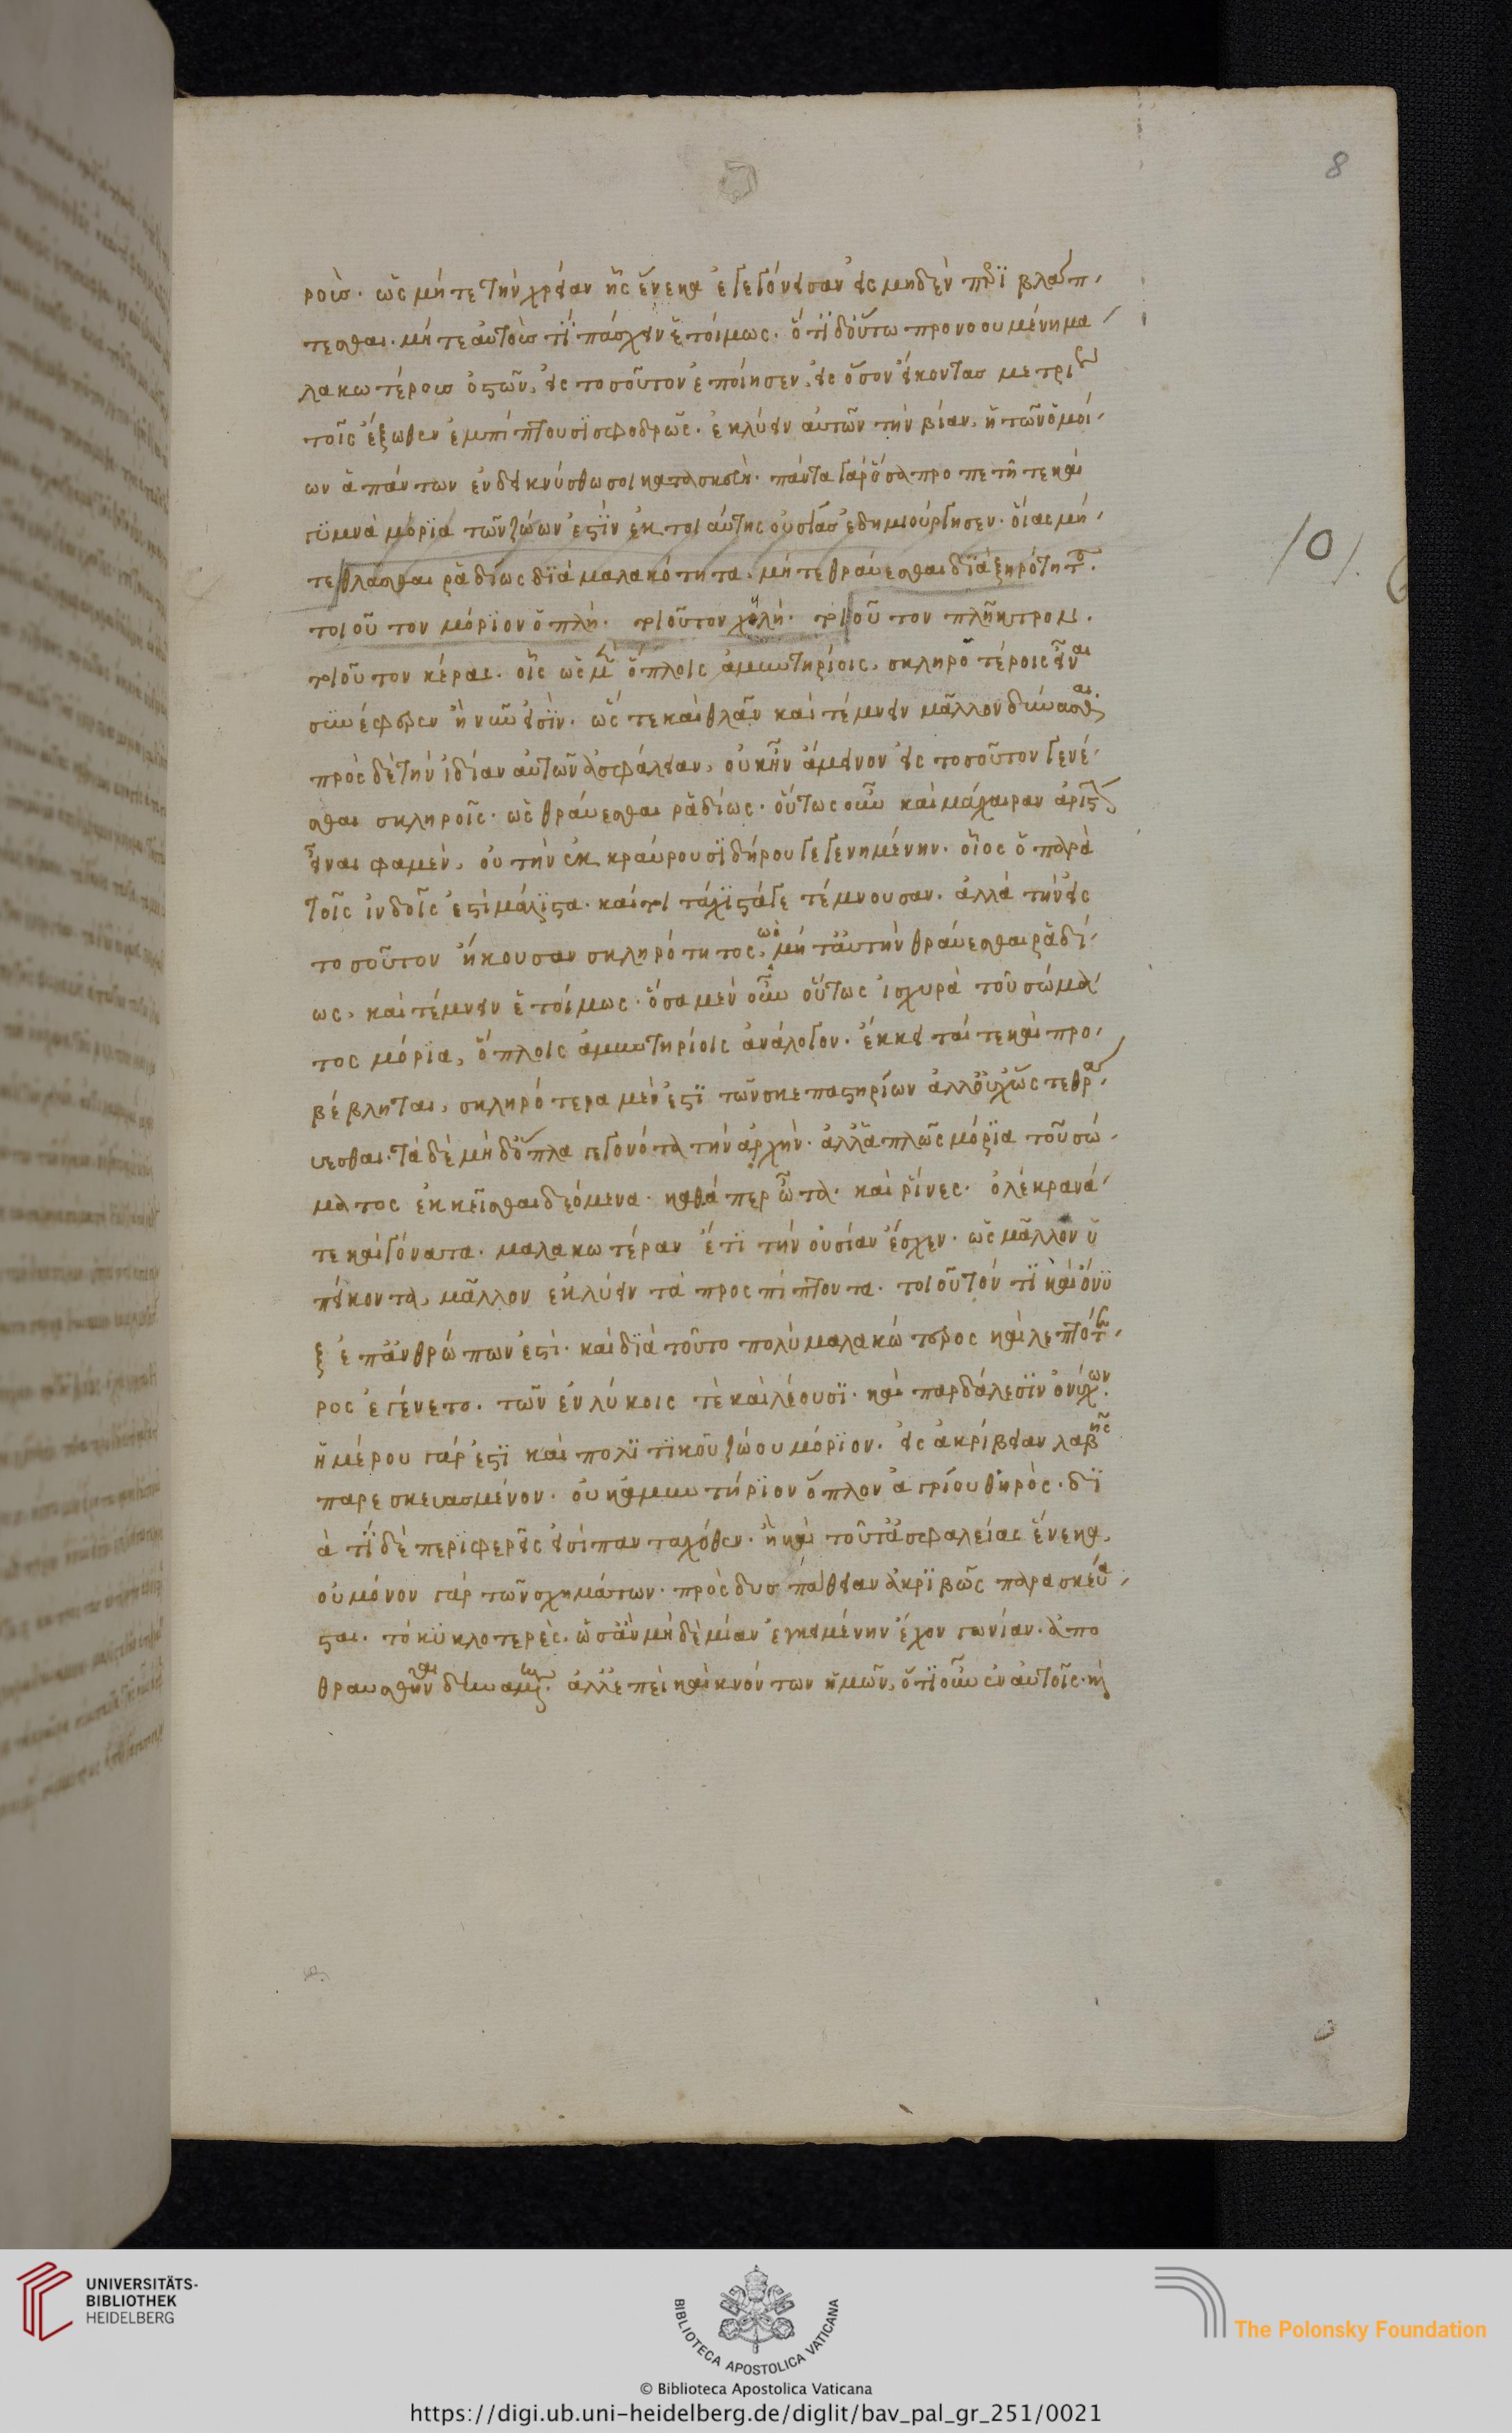 8
ροισ. ὡς μήτε τὴν χρείαν ἧς ἕνεκα ἐγεγόνεισαν εἰς μηδὲν τι βλάπ-
τεσθαι. μήτε αὐτοῖσ τϊ πάσχειν ἑτοίμως. ὅτι δ οὕτω προνοουμένη μα
λακωτέροισ ὀστῶν, εἰς τοσοῦτον ἐποίησεν, εἰς ὅσον εἴκοντασ μετρίως
τοῖς ἔξωθεν ἐμπίπτουσϊ σφοδρῶς. ἐκλύειν αὐτῶν τὴν βίαν, ἡ τῶν ὁμοί-
ων ἁπάντων ἐνδεικνύσθω σοι κατασκευὴ. πάντα γὰρ ὅσα προπετῆ τε καὶ
γϋμνὰ μόρϊα τῶν ζώων ἐστϊν ἐκ τοιαύτης οὐσίασ ἐδημιούργησεν. οἵας μή-
τε θλάσθαι ῥαδίως δϊὰ μαλακότητα. μήτε θραύεσθαι δϊὰ ξηρότητα.
τοιοῦτον μόρϊον ὁπλή. τοιοῦτον χηλή. τοιοῦτον πλῆκτρον.
τοιοῦτον κέρας. οἷς ὡς μὲν ὅπλοις ἀμυντηρίοις, σκληροτέροις εἶναι
συνέφερεν ἢ νῦν εἰσϊν. ὥς τε καὶ θλᾶν καὶ τέμνειν μᾶλλον δύνασθαι.
πρὸς δὲ τὴν ἰδίαν αὐτῶν ἀσφάλειαν, οὐκ ἦν ἄμεινον εἰς τοσοῦτον γενέ-
σθαι σκληροῖς. ὡς θραύεσθαι ῥαδίως. οὕτως οὖν καὶ μάχαιραν ἀρίστην
εἶναι φαμὲν, οὐ τὴν ἐκ κραύρου σϊδήρου γεγενημένην. οἷος ὁ παρὰ
τοῖς ἰνδοῖς ἐστὶ μάλϊστα. καίτοι τάχϊστά γε τέμνουσαν. ἀλλὰ τὴν εἰς
τοσοῦτον ἥκουσαν σκληρότητος, ὡς μήτ αὐτὴν θραύεσθαι ῥαδί-
ως, καὶ τέμνειν ἑτοίμως. ὅσα μὲν οὖν οὕτως ἰσχυρὰ τοῦ σώμα
τος μόρϊα, ὅπλοις ἀμυντηρίοις ἀνάλογον. ἔκκειταί τε καὶ προ-
βέβληται, σκληρότερα μὲν ἐστϊ τῶν σκεπαστηρίων ἀλλ οὐχ ὥς τε θρα-
υεσθαι. τὰ δὲ μὴ δ ὅπλα γεγονότα τὴν ἀρχὴν. ἀλλ ἁπλῶς μόρϊα τοῦ σώ-
ματος ἐκκεῖσθαι δεόμενα. καθάπερ ὦτα. καὶ ῥίνες. ὀλέκρανά
τε καὶ γόνατα. μαλακωτέραν ἔτϊ τὴν οὐσίαν ἔσχεν. ὡς μᾶλλον ὑ
πείκοντα, μᾶλλον ἐκλύειν τὰ προσπίπτοντα. τοιοῦτόν τϊ καὶ ὄνϋ
ξ ἐπ ἀνθρώπων ἐστὶ. καὶ δϊὰ τοῦτο πολὺ μαλακώτερος καὶ λεπτότε-
ρος ἐγένετο. τῶν ἐν λύκοις τὲ καὶ λέουσϊ. καὶ παρδάλεσϊν ὀνύχων.
ἡμέρου γάρ ἐστϊ καὶ πολϊτϊκοῦ ζώου μόρϊον. εἰς ἀκρίβειαν λαβῆς
παρεσκευασμένον. οὐκ ἀμυντήρϊον ὅπλον ἀγρίου θηρὸς. δϊ
ὰ τϊ δὲ περϊφερεῖς εἰσὶ πανταχόθεν. ἢ καὶ τοῦτ ἀσφαλείας ἕνεκα,
οὐ μόνον γὰρ τῶν σχημάτων. πρὸς δυσπάθειαν ἀκρϊβῶς παρασκεύα-
σται. τὸ κϋκλοτερὲς. ὡσὰν μὴ δὲ μίαν ἐγκειμένην ἔχον γωνίαν. ἀπο
θραυσθῆναι δυναμένην. ἀλλ ἐπεὶ καὶ κνόντων ἡμῶν, ὅτϊ οὖν ἐν αὐτοῖς. καὶ
/0/.
UNIVERSITÄTS-
BIBLIOTHEK
HEIDELBERG
BIBLIOTECA APOSTOLICA VATICANA
The Polonsky Foundation
© Biblioteca Apostolica Vaticana
https://digi.ub.uni-heidelberg.de/diglit/bav_pal_gr_251/0021